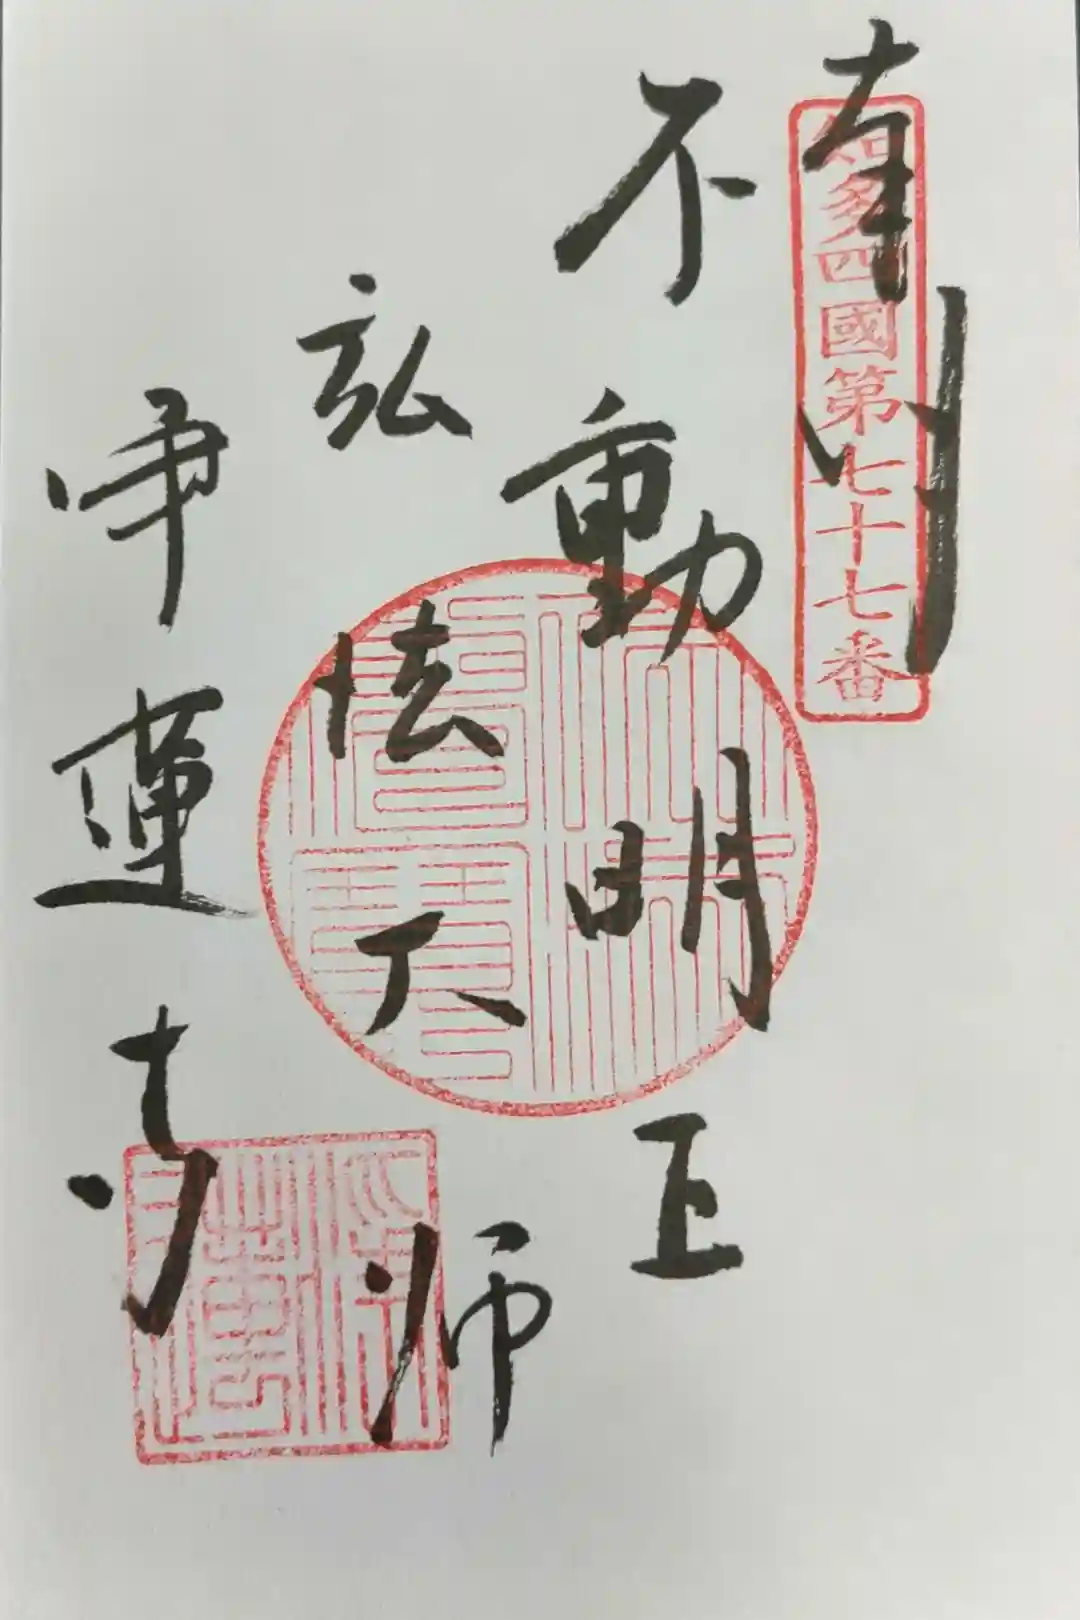 奉拝
知多四國第七十七番
不動明王
弘法大師
浄蓮寺